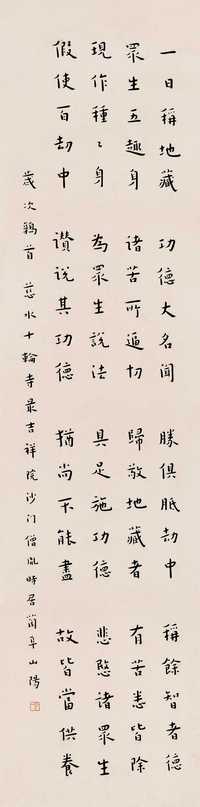 一日稱地藏 功德大名聞 勝俱胝劫中 稱餘智者德
眾生五趣身 諸苦所逼切 歸敬地藏者 有苦悉皆除
現作種種身 為眾生說法 具足施功德 悲愍諸眾生
假使百劫中 讚說其功德 猶尚不能盡 故皆當供養
歲次鶉首 慈水十輪寺最吉祥院沙门僧胤時居蘭阜山陽